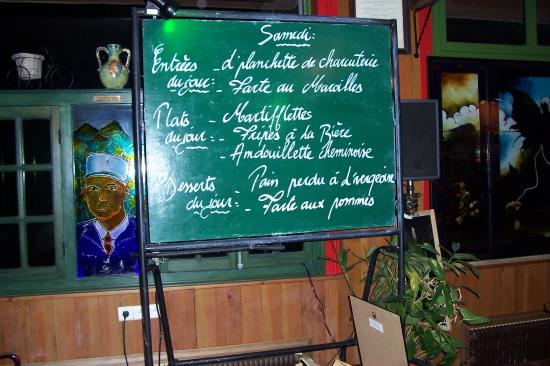 Samedi:
Entrées - d'planchette de charcuterie
du jour: - Tarte au Maroilles
Plats - Martifflettes
du jour: - Faires à la Bière
- Andouillette cheminoise
Desserts - Pain perdu à l'vergeoise
du jour: - Tarte aux pommes